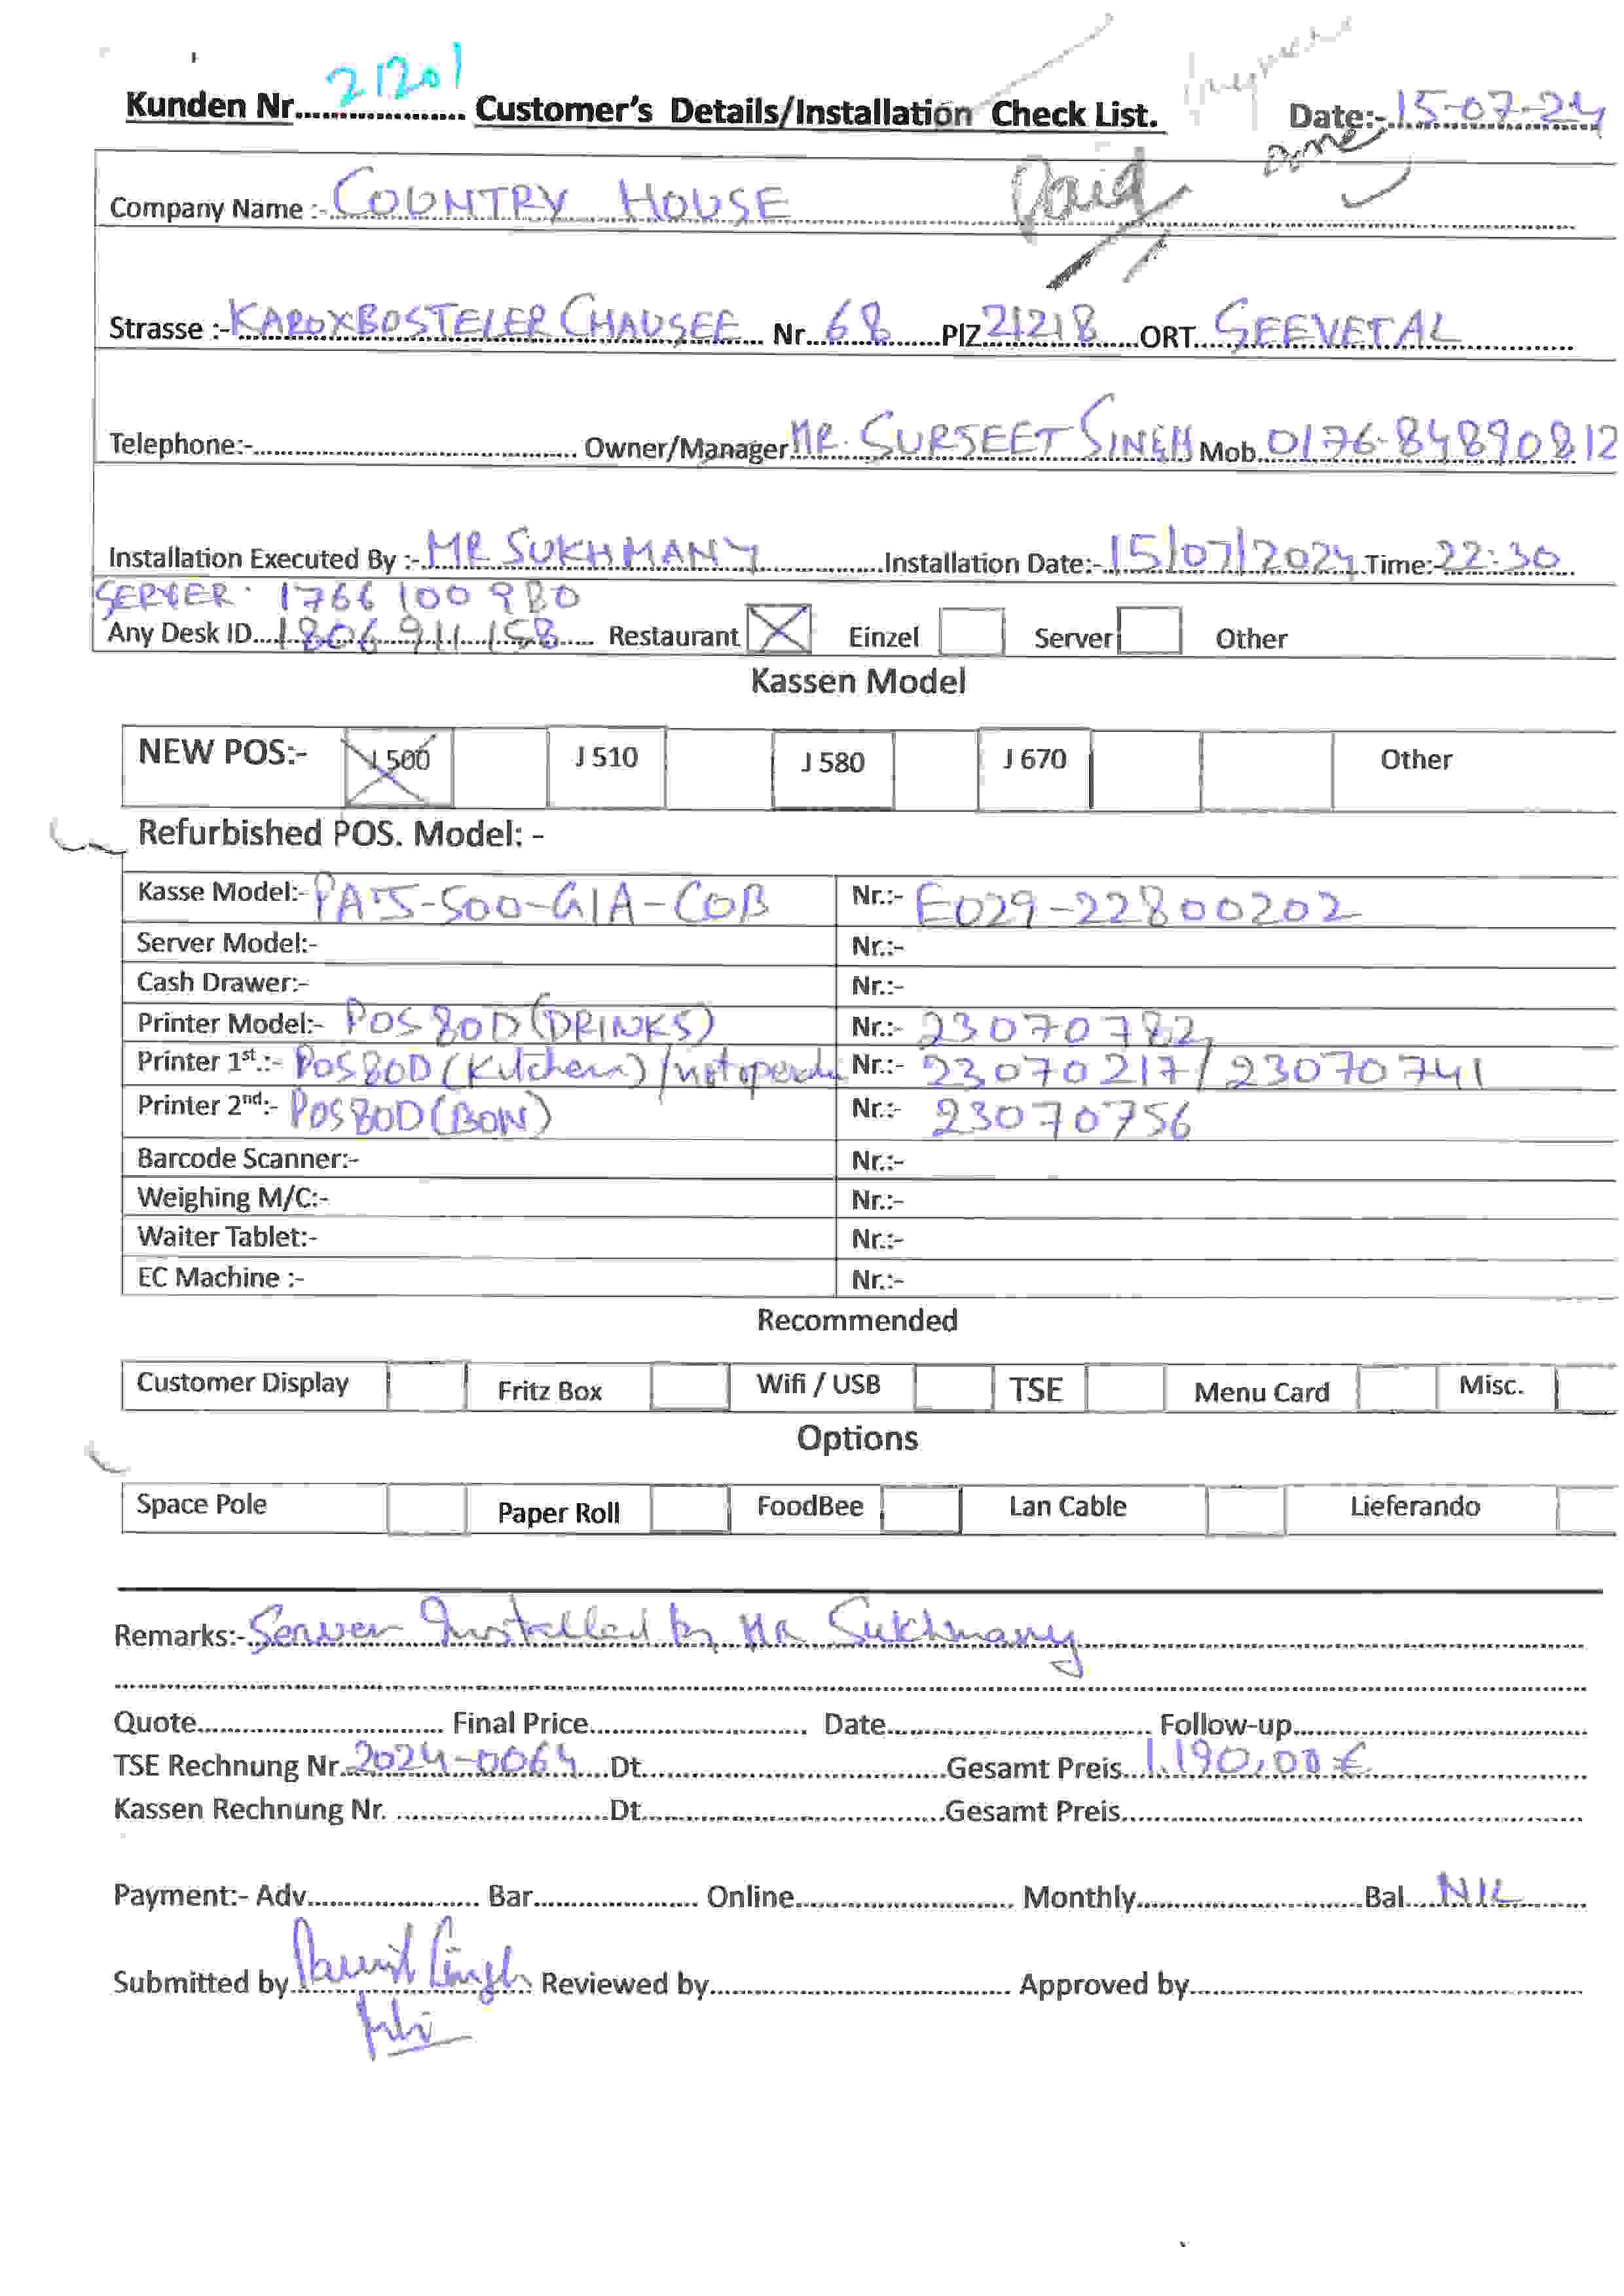 Kunden Nr. 21201 Customer's Details/Installation Check List. Date:- 15-07-24
Paid Done
Company Name :- COUNTRY HOUSE
Strasse :- KAROXBOSTELER CHAUSEE Nr. 68 PlZ 21218 ORT. SEEVETAL
Telephone:- Owner/Manager MR. SURSEET SINGH Mob. 0176-84890812
Installation Executed By :- MR SUKHMANY Installation Date:- 15/07/2024 Time:- 22:30
SERVER: 1766 100 980
Any Desk ID. 1806 911 158 Restaurant Einzel Server Other
Kassen Model
NEW POS:- J 500 J 510 J 580 J 670 Other
Refurbished POS. Model: -
Kasse Model:- PA-J-500-G1A-COB Nr.:- E029-22800202
Server Model:- Nr.:-
Cash Drawer:- Nr.:-
Printer Model:- POS 80D (DRINKS) Nr.:- 23070782
Printer 1st.:- POS80D (Kutchen) / Nr.:- 23070217/23070741
Printer 2nd:- POS80D (BON) Nr.:- 23070756
Barcode Scanner:- Nr.:-
Weighing M/C:- Nr.:-
Waiter Tablet:- Nr.:-
EC Machine :- Nr.:-
Recommended
Customer Display Fritz Box Wifi / USB TSE Menu Card Misc.
Options
Space Pole Paper Roll FoodBee Lan Cable Lieferando
Remarks:- Server Installed by MR Sukhmany
Quote Final Price Date Follow-up
TSE Rechnung Nr. 2024-0064 Dt Gesamt Preis 1.190,00 €
Kassen Rechnung Nr. Dt Gesamt Preis
Payment:- Adv. Bar Online Monthly Bal. NIL
Submitted by Reviewed by Approved by